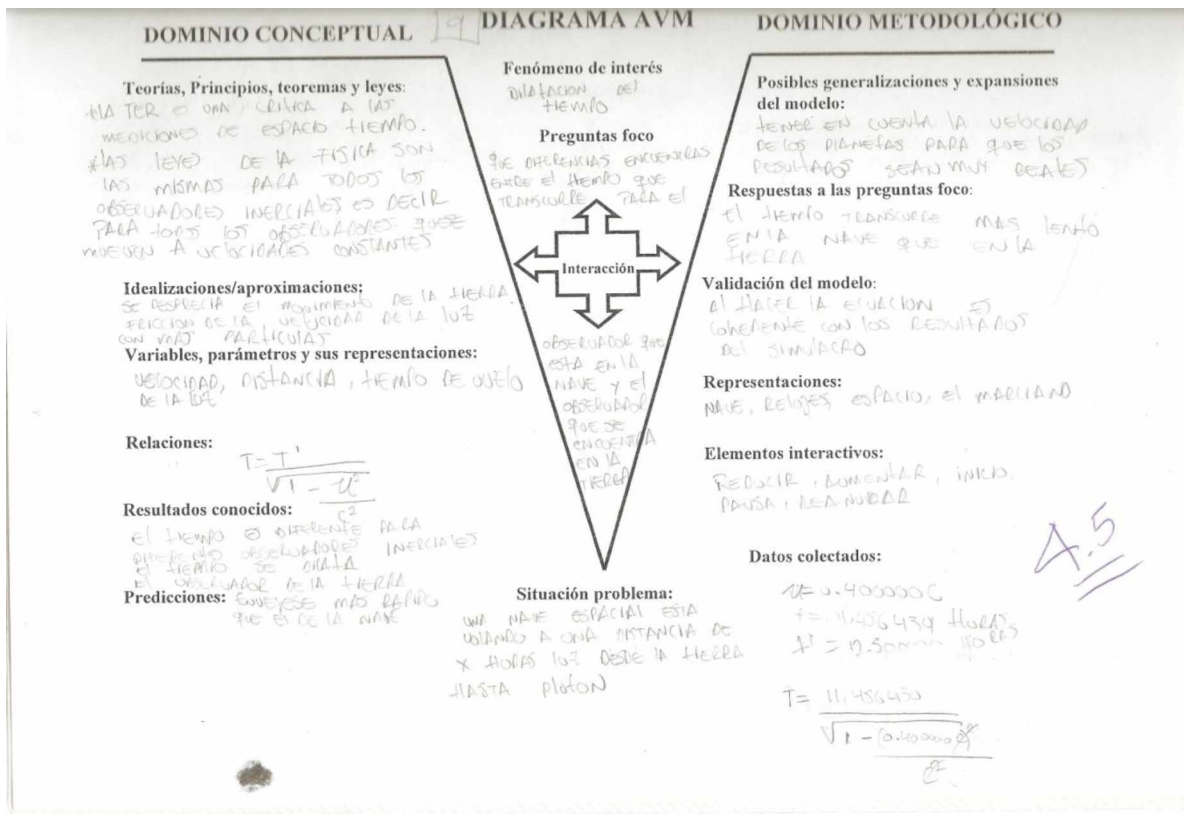 DOMINIO CONCEPTUAL
9
DIAGRAMA AVM
DOMINIO METODOLÓGICO
Teorías, Principios, teoremas y leyes:
*LA TER ES UNA CRITICA A LAS
MEDICIONES DE ESPACIO TIEMPO.
*LAS LEYES DE LA FISICA SON
LAS MISMAS PARA TODOS LOS
OBSERVADORES INERCIALES, ES DECIR
PARA TODOS LOS OBSERVADORES QUE SE
MUEVEN A VELOCIDADES CONSTANTES
Idealizaciones/aproximaciones:
SE DESPRECIA EL MOVIMIENTO DE LA TIERRA.
FRICCION DE LA VELOCIDAD DE LA LUZ
CON MAS PARTICULAS
Variables, parámetros y sus representaciones:
VELOCIDAD, DISTANCIA, TIEMPO DE VUELO
DE LA LUZ
Relaciones:
T = T'
√1 - u²
c²
Resultados conocidos:
El TIEMPO ES DIFERENTE PARA
DIFERENTES OBSERVADORES INERCIALES
El TIEMPO SE DILATA
El OBSERVADOR DE LA TIERRA
Predicciones: ENVEJESE MAS RAPIDO
QUE EL DE LA NAVE
Fenómeno de interés
DILATACION DEL
TIEMPO
Preguntas foco
QUE DIFERENCIAS ENCUENTRAS
ENTRE El TIEMPO QUE
TRANSCURRE PARA El
Interacción
OBSERVADOR QUE
ESTA EN LA
NAVE Y El
OBSERVADOR
QUE SE
ENCUENTRA
EN LA
TIERRA
Situación problema:
UNA NAVE ESPACIAL ESTA
VOLANDO A UNA DISTANCIA DE
X HORAS LUZ DESDE LA TIERRA
HASTA PlatoN
Posibles generalizaciones y expansiones
del modelo:
TENER EN CUENTA LA VELOCIDAD
DE LOS PLANETAS PARA QUE LOS
RESULTADOS SEAN MUY REALES
Respuestas a las preguntas foco:
El TIEMPO TRANSCURRE MAS LENTO
EN LA NAVE QUE EN LA
TIERRA
Validación del modelo:
Al HACER LA ECUACION ES
COHERENTE CON LOS RESULTADOS
DEL SIMULACRO
Representaciones:
NAVE, RELOJES, ESPACIO, El MARCIANO
Elementos interactivos:
REDUCIR, AUMENTAR, INICIO,
PAUSA, REANUDAR
4.5
Datos colectados:
u = 0.400000 C
HORAS
HORAS
T = 11,456430
√1 - (0.400000 c)²
c²